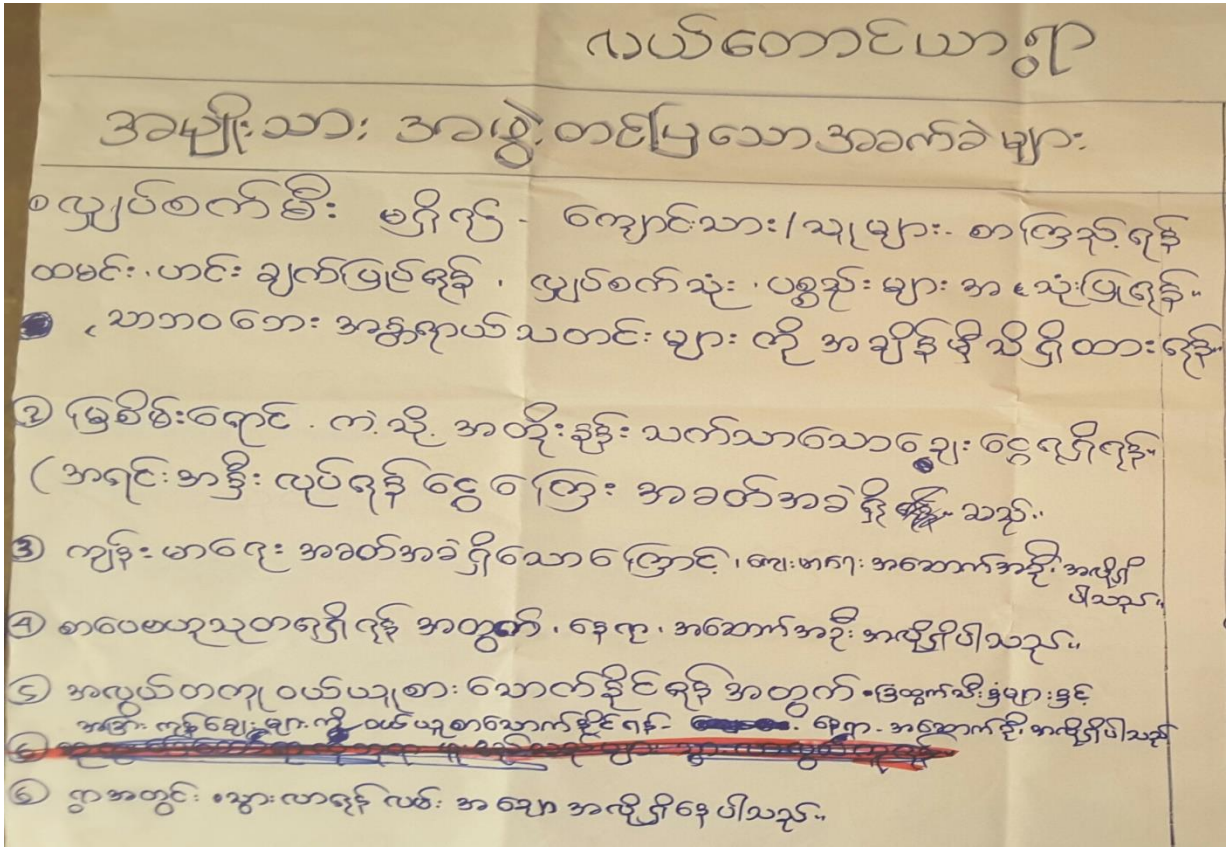 လယ်တောင်ယာရွာ
အမျိုးသား အဖွဲ့တင်ပြသောအခက်ခဲများ
လျှပ်စက်မီး မရှိ၍ - ကျောင်းသား/သူများ. စာကြည့်ရန်
ထမင်း၊ ဟင်း ချက်ပြုပ်ရန်၊ လျှပ်စက်သုံး၊ ပစ္စည်းများ အသုံးပြုရန်။
သဘာဝဘေး အန္တရာယ်သတင်းများ ကို အချိန်မှီသိရှိထားရန်။
② မြစိမ်းရောင် ကဲ့သို့ အတိုးနှုန်း သက်သာသောချေးငွေရရှိရန်။
(အရင်းအနှီး လုပ်ရန် ငွေကြေး အခတ်အခဲရှိ သည်။
③ ကျန်းမာရေး အခတ်အခဲရှိသောကြောင့်၊ ကျေးမာရေး အဆောက်အဦး အလိုရှိ
ပါသည်။
④ စာပေဗဟုသုတရရှိရန် အတွက်၊ နေရာ၊ အဆောက်အဦး အလိုရှိပါသည်။
⑤ အလွယ်တကူ ဝယ်ယူစားသောက်နိုင်ရန် အတွက် ခြံထွက်သီးနှံများနှင့်
အခြား ကုန်ချေးများကို ဝယ်ယူစားသောက်နိုင်ရန် နေရာ. အဆောက်ဦး အလိုရှိပါသည်
⑥ ရွာအတွင်း သွားလာရန် လမ်း အချော အလိုရှိနေပါသည်။